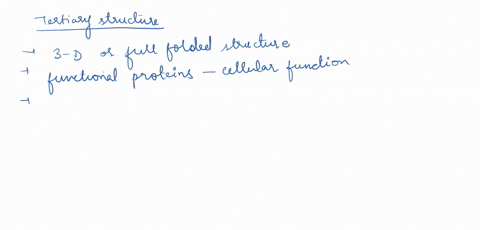 Tertiary structure
→ 3-D or full folded structure
→ functional proteins — cellular function
→